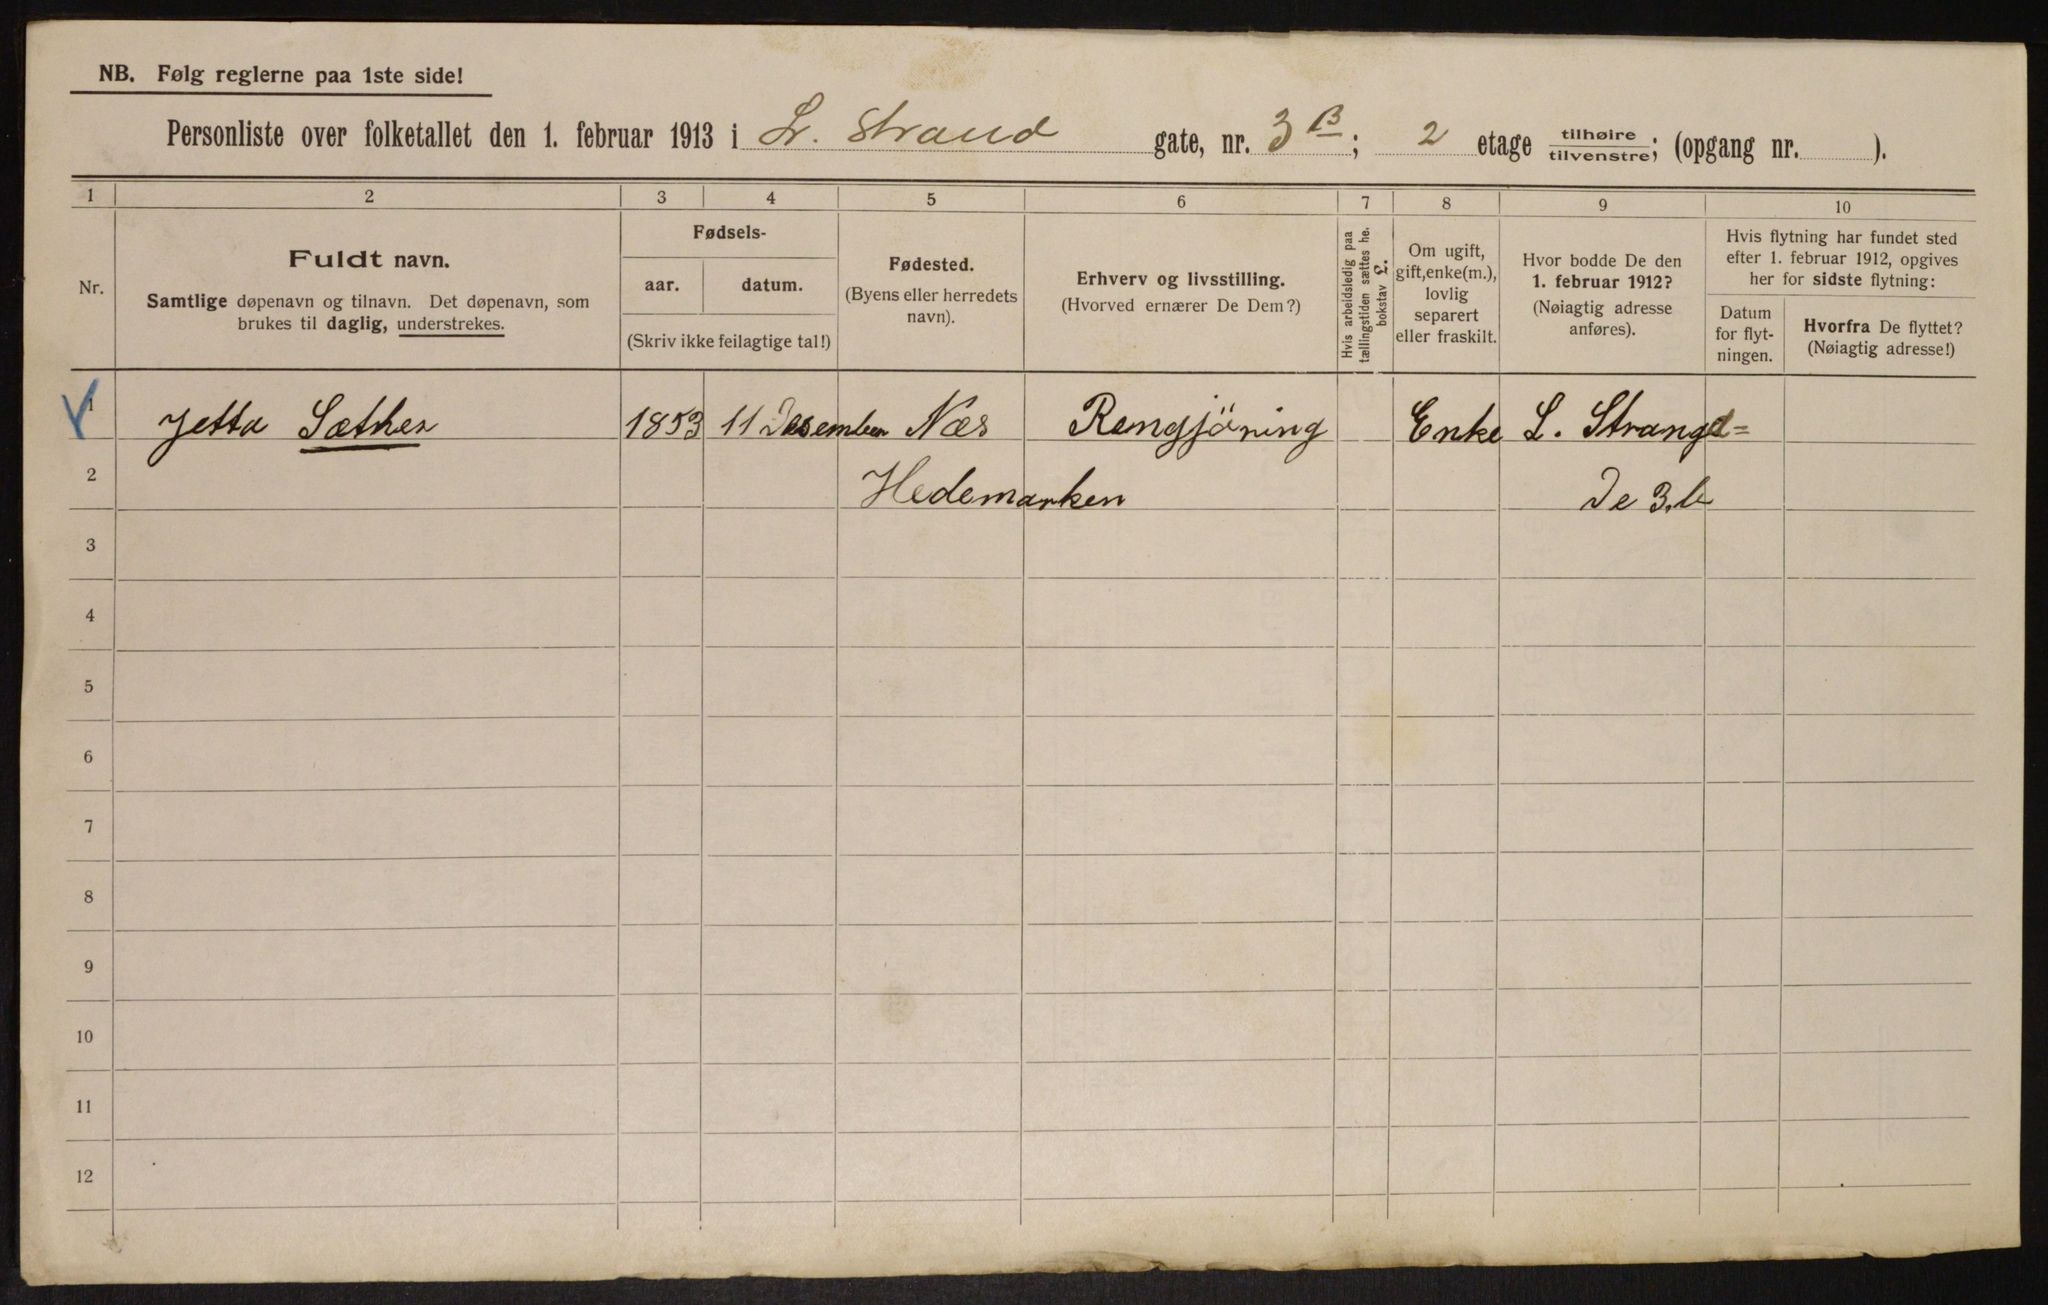 NB. Følg reglerne paa 1ste side!
Personliste over folketallet den 1. februar 1913 i Lr. Strand gate, nr. 3 B; 2 etage tilhøire/tilvenstre; (opgang nr. ).
1 2 3 4 5 6 7 8 9 10
Nr.
Fuldt navn.
Samtlige døpenavn og tilnavn. Det døpenavn, som
brukes til daglig, understrekes.
Fødsels-
aar. datum.
(Skriv ikke feilagtige tal!)
Fødested.
(Byens eller herredets
navn).
Erhverv og livsstilling.
(Hvorved ernærer De Dem?)
Hvis arbeidsledig paa
tællingstiden sættes he.
bokstav £.
Om ugift,
gift, enke(m.),
lovlig
separert
eller fraskilt.
Hvor bodde De den
1. februar 1912?
(Nøiagtig adresse
anføres).
Hvis flytning har fundet sted
efter 1. februar 1912, opgives
her for sidste flytning:
Datum
for flyt-
ningen.
Hvorfra De flyttet?
(Nøiagtig adresse!)
1 Jetta Sæther 1853 11 Desember Næs Rengjöring Enke L. Strangd=
2 Hedemarken De 3.b
3
4
5
6
7
8
9
10
11
12